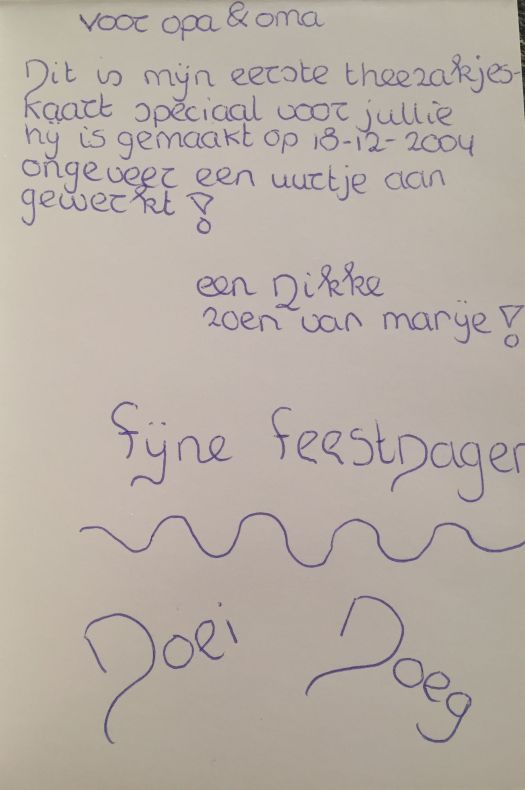 voor opa & oma
Dit is mijn eerste theezakjes-
kaart speciaal voor jullie
hij is gemaakt op 18-12-2004
ongeveer een uurtje aan
gewerkt!
een Dikke
zoen van marije!
fijne feestDagen
Doei Doeg